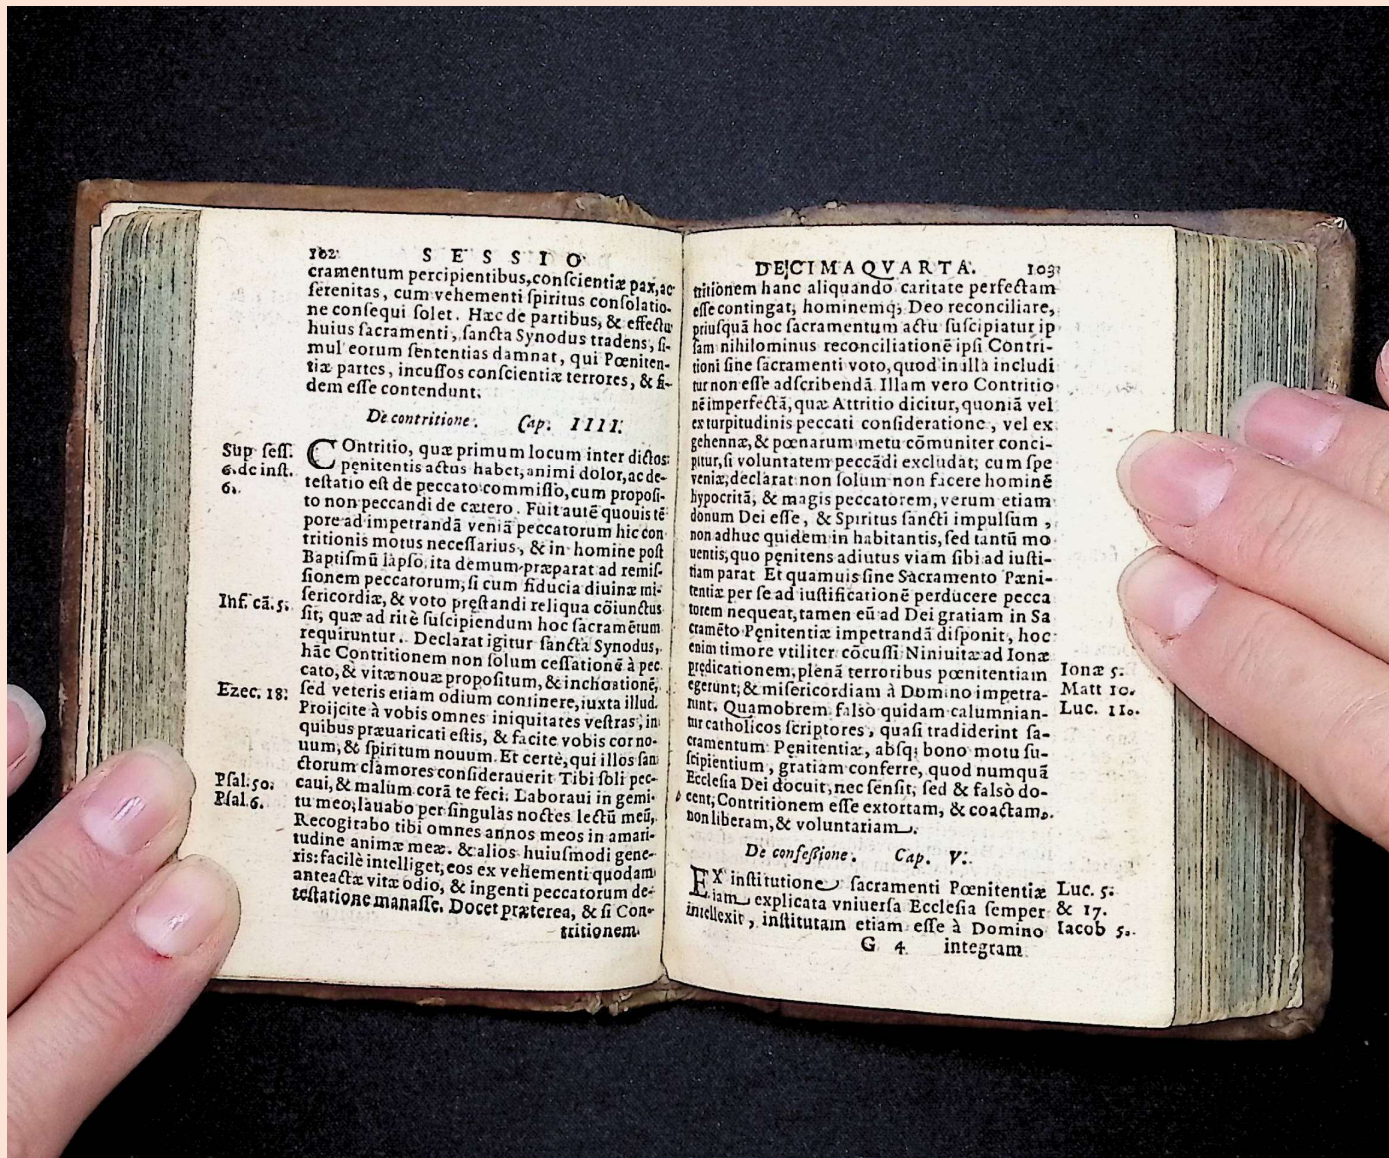 102 SESSIO
cramentum percipientibus,conſcientiæ pax,ac
ſerenitas, cum vehementi ſpiritus conſolatio-
ne conſequi ſolet. Hæc de partibus, & effectu
huius ſacramenti, ſancta Synodus tradens, ſi-
mul eorum ſententias damnat, qui Pœniten-
tiæ partes, incuſſos conſcientiæ terrores, & fi-
dem eſſe contendunt.
De contritione. Cap. IIII.
COntritio, quæ primum locum inter dictos
pęnitentis actus habet,animi dolor,ac de-
teſtatio eſt de peccato commiſſo,cum propoſi-
to non peccandi de cætero. Fuit autē quouis tē
pore ad impetrandā veniā peccatorum hic con
tritionis motus neceſſarius, & in homine poſt
Baptiſmū lapſo,ita demum præparat ad remiſ-
ſionem peccatorum,ſi cum fiducia diuinæ mi-
ſericordiæ, & voto pręſtandi reliqua cōiunctus
ſit, quæ ad ritè ſuſcipiendum hoc ſacramētum
requiruntur. Declarat igitur ſancta Synodus,
hāc Contritionem non ſolum ceſſationē à pec
cato, & vitæ nouæ propoſitum, & inchoationē,
ſed veteris etiam odium continere,iuxta illud.
Proijcite à vobis omnes iniquitates veſtras, in
quibus præuaricati eſtis, & facite vobis cor no-
uum, & ſpiritum nouum. Et certè,qui illos ſan
ctorum clamores conſiderauerit Tibi ſoli pec-
caui, & malum corā te feci. Laboraui in gemi-
tu meo,lauabo per ſingulas noctes lectū meū,
Recogitabo tibi omnes annos meos in amari-
tudine animæ meæ. & alios huiuſmodi gene-
ris: facilè intelliget, eos ex vehementi quodam
anteactæ vitæ odio, & ingenti peccatorum de-
teſtatione manaſſe. Docet præterea, & ſi Con-
tritionem
Sup ſeſſ.
6.de inſt.
6.
Inf. cā. 5.
Ezec. 18.
Pſal. 50.
Pſal. 6.
DECIMAQVARTA. 103
tritionem hanc aliquando caritate perfectam
eſſe contingat, hominemq; Deo reconciliare,
priuſquā hoc ſacramentum actu ſuſcipiatur ip
ſam nihilominus reconciliationē ipſi Contri-
tioni ſine ſacramenti voto,quod in illa includi
tur non eſſe adſcribendā Illam vero Contritio
nē imperfectā,quæ Attritio dicitur,quoniā vel
ex turpitudinis peccati conſideratione, vel ex
gehennæ,& pœnarum metu cōmuniter conci-
pitur,ſi voluntatem peccādi excludat; cum ſpe
veniæ,declarat non ſolum non facere hominē
hypocritā, & magis peccatorem, verum etiam
donum Dei eſſe, & Spiritus ſancti impulſum,
non adhuc quidem in habitantis,ſed tantū mo
uentis,quo pęnitens adiutus viam ſibi ad iuſti-
tiam parat Et quamuis ſine Sacramento Pæni-
tentiæ per ſe ad iuſtificationē perducere pecca
torem nequeat,tamen eū ad Dei gratiam in Sa
cramēto Pęnitentiæ impetrandā diſponit, hoc
enim timore vtiliter cōcuſſi Niniuitæ ad Ionæ
prędicationem,plenā terroribus pœnitentiam
egerunt; & miſericordiam à Domino impetra-
runt. Quamobrem falsò quidam calumnian-
tur catholicos ſcriptores, quaſi tradiderint ſa-
cramentum Pęnitentiæ, abſq; bono motu ſu-
ſcipientium, gratiam conferre, quod numquā
Eccleſia Dei docuit,nec ſenſit; ſed & falsò do-
cent, Contritionem eſſe extortam, & coactam,
non liberam,& voluntariam.
De confeſſione. Cap. V.
EX inſtitutione ſacramenti Pœnitentiæ
iam explicata vniuerſa Eccleſia ſemper
intellexit, inſtitutam etiam eſſe à Domino
G 4 integram
Ionæ 5.
Matt 10.
Luc. 11.
Luc. 5.
& 17.
Iacob 5.